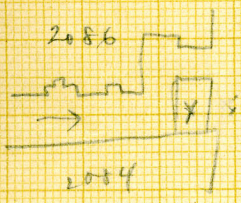 2086
X
2084